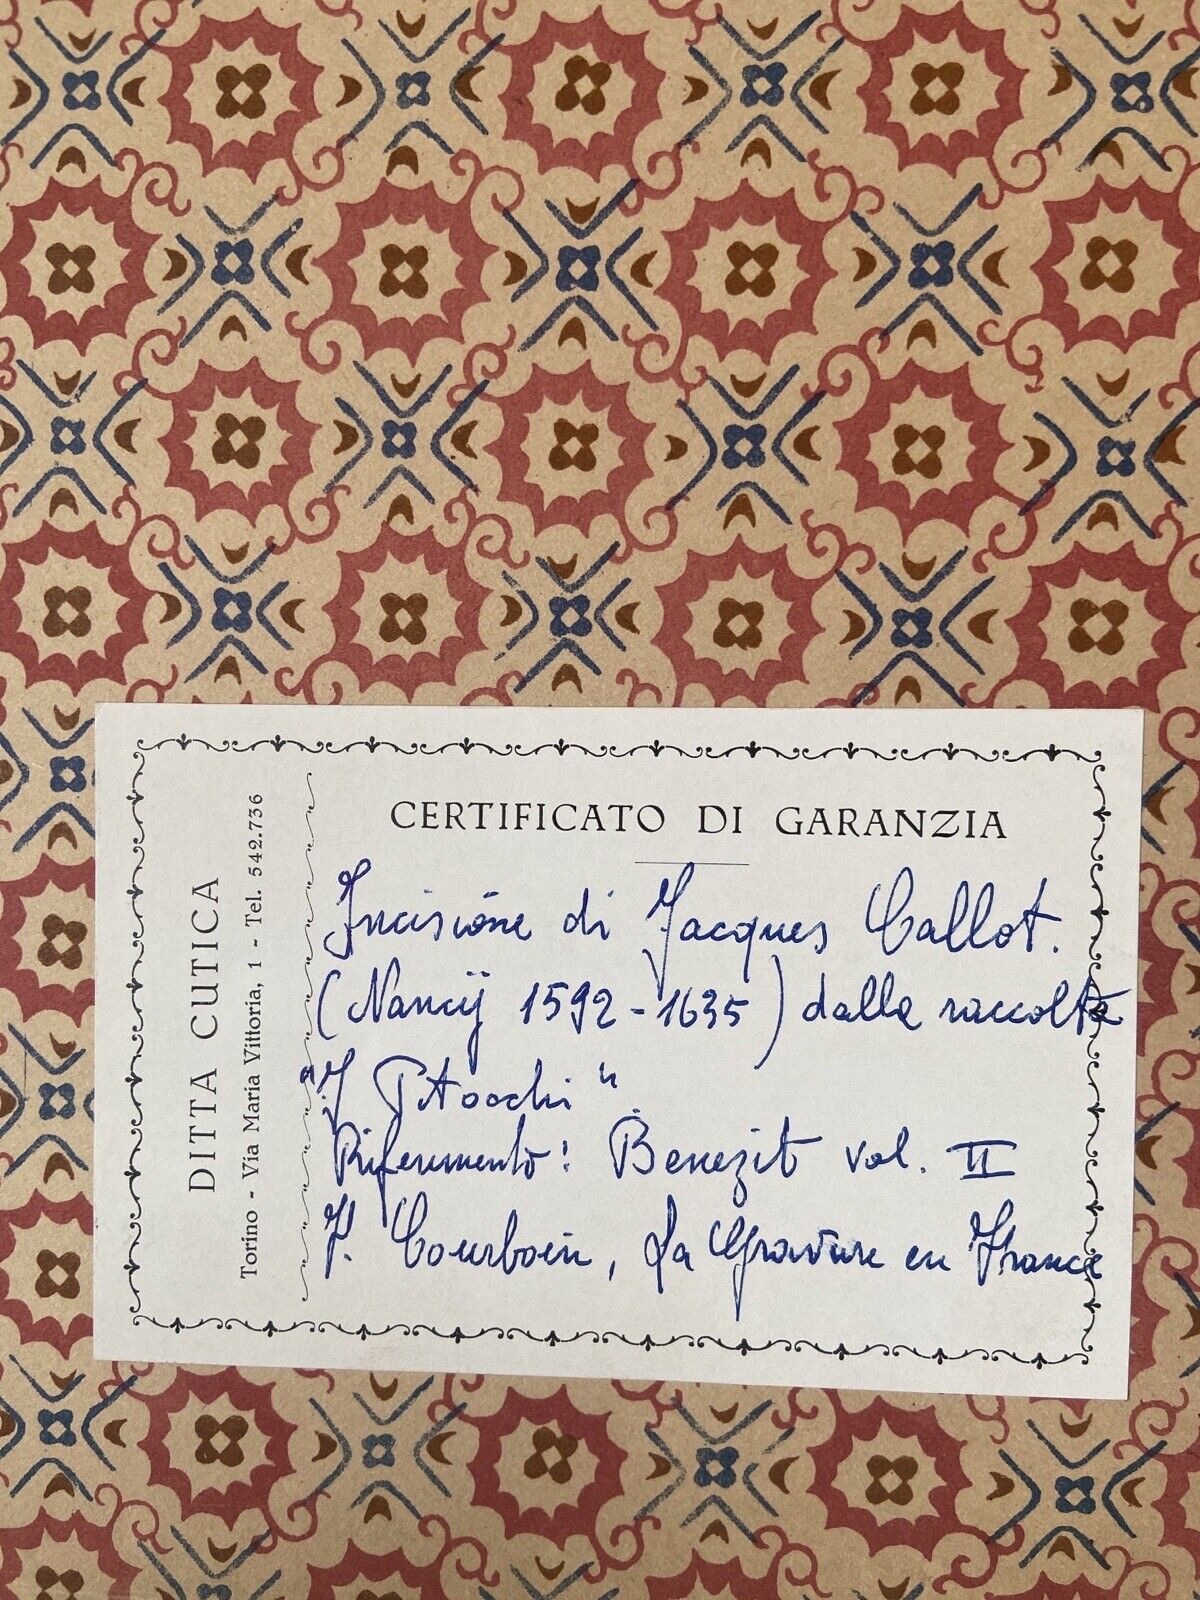 DITTA CUTICA
Torino - Via Maria Vittoria, 1 - Tel. 542.736
CERTIFICATO DI GARANZIA
Incisione di Jacques Callot.
(Nancÿ 1592-1635) dalla raccolta
"I Pitocchi".
Riferimento: Benezit vol. II
F. Courboin, La Gravure en France